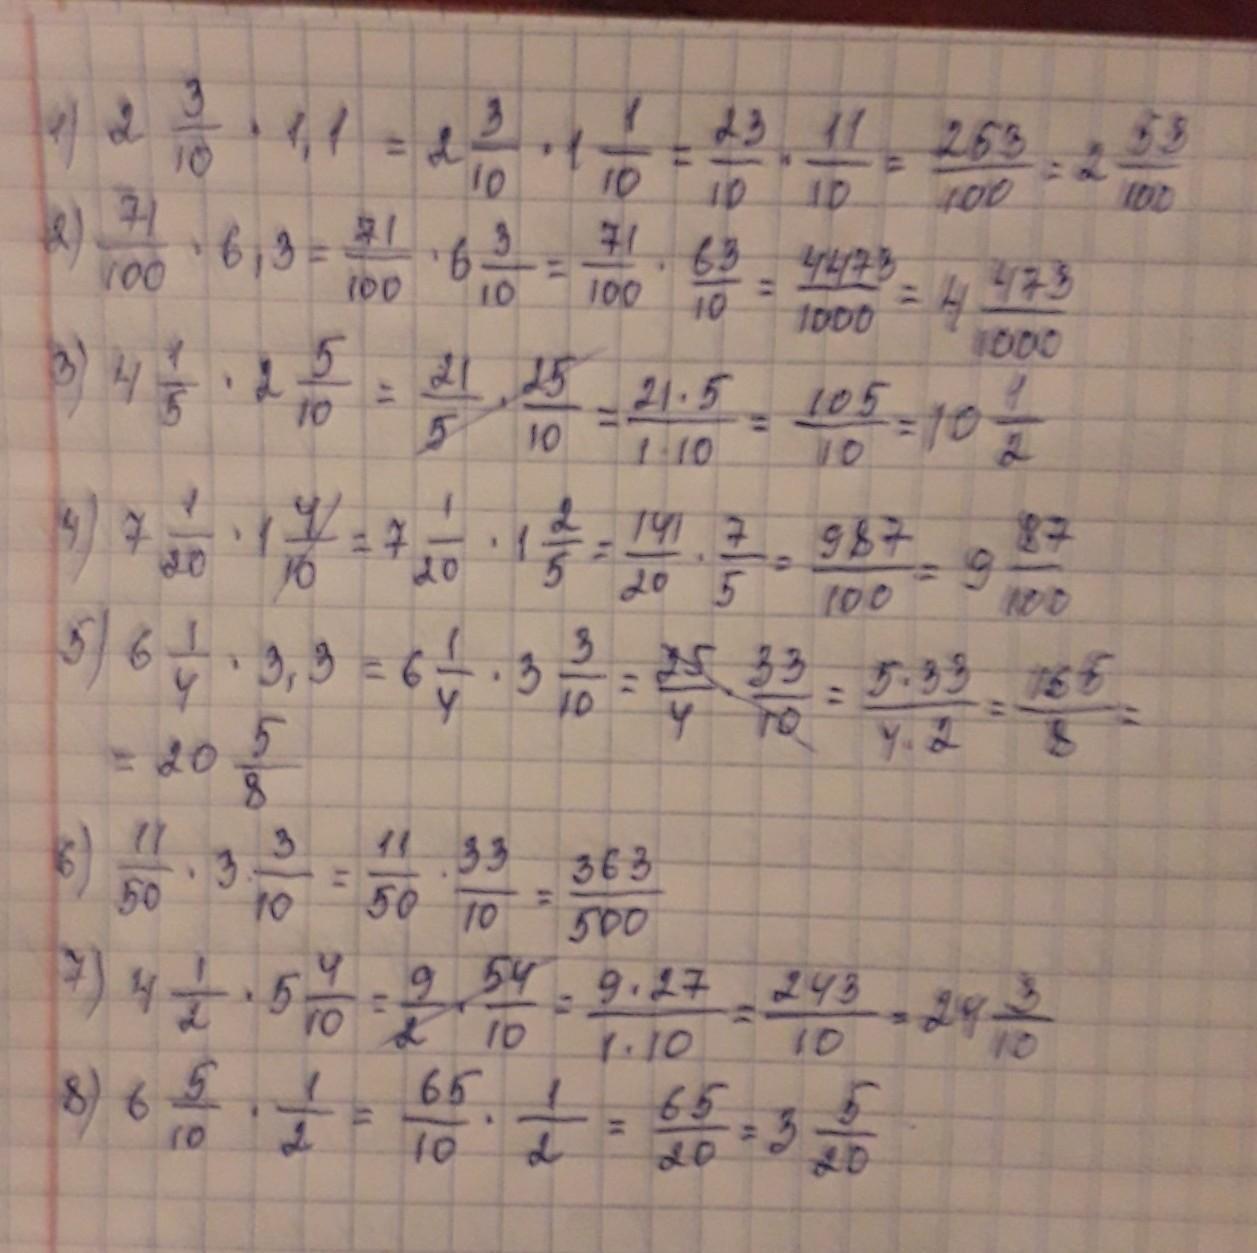 1) 2 3/10 · 1,1 = 2 3/10 · 1 1/10 = 23/10 · 11/10 = 253/100 = 2 53/100
2) 71/100 · 6,3 = 71/100 · 6 3/10 = 71/100 · 63/10 = 4473/1000 = 4 473/1000
3) 4 1/5 · 2 5/10 = 21/5 · 25/10 = 21·5/1·10 = 105/10 = 10 1/2
4) 7 1/20 · 1 4/10 = 7 1/20 · 1 2/5 = 141/20 · 7/5 = 987/100 = 9 87/100
5) 6 1/4 · 3,3 = 6 1/4 · 3 3/10 = 25/4 · 33/10 = 5·33/4·2 = 165/8 =
= 20 5/8
6) 11/50 · 3 3/10 = 11/50 · 33/10 = 363/500
7) 4 1/2 · 5 4/10 = 9/2 · 54/10 = 9·27/1·10 = 243/10 = 24 3/10
8) 6 5/10 · 1/2 = 65/10 · 1/2 = 65/20 = 3 5/20